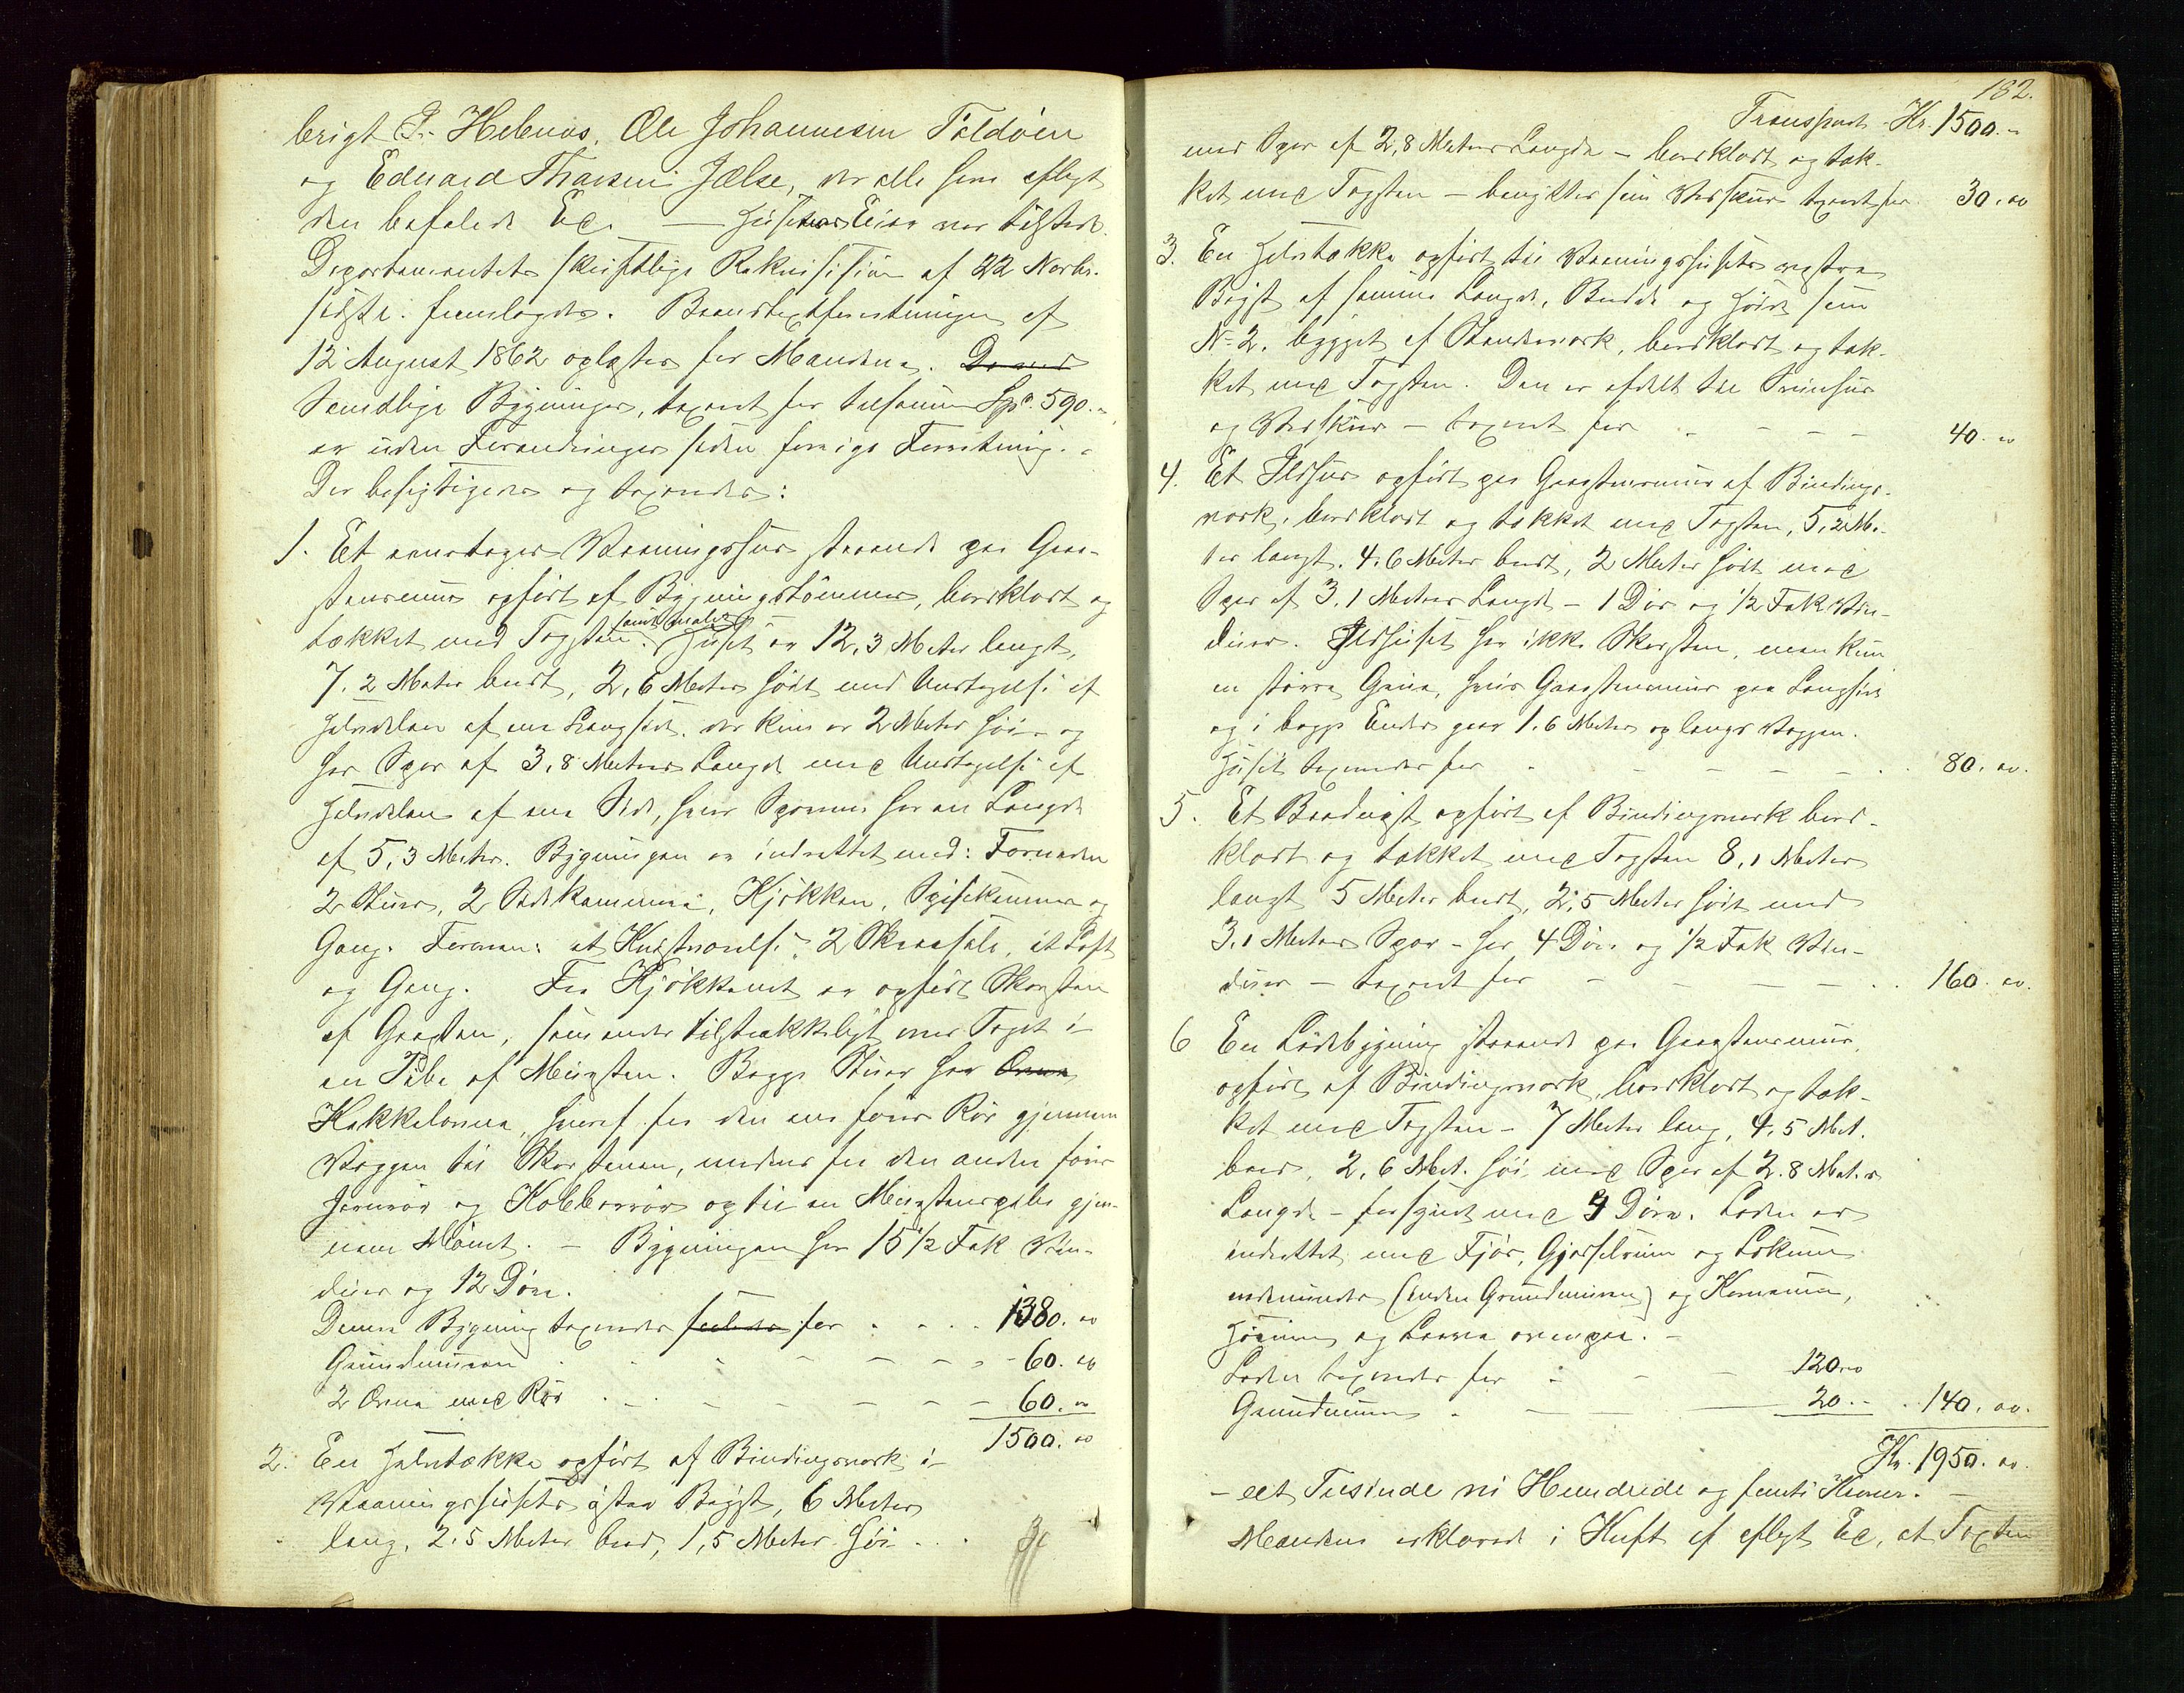 brigt P. Hebnes, Ole Johannesen Foldøen
og Edvard Thorsen Jelse, der alle have aflagt
den befalede Ed. — Husets Eier var tilstede.
Departementets skriftlige Rekvisition af 22 Novbr.
sidstl. fremlagdes. Brandtaxtforretningen af
12 August 1862 oplæstes for Mændene.
Samtlige Bygninger, taxeret for tilsammen Spd. 590.
er uden Forandringer siden forrige Forretning.
Der besigtigedes og taxeredes:
1. Et eenetages Vaaningshus staaende paa Graa-
stensmur opført af Bygningstømmer, bordklædt og
tækket med Tagsten samt malet. Huset er 12,3 Meter langt,
7.2 Meter bredt, 2,6 Meter høit med Undtagelse af
Halvdelen af ene Langside, der kun er 2 Meter høi og
har Sper af 3,8 Meters Længde med Undtagelse af
Halvdelen af ene Side, hvor Sperrene har en Længde
af 5,3 Meter. Bygningen er indrettet med: Forneden
2 Stuer, 2 Sidekammere, Kjøkken, Spisekammer og
Gang. Foroven: et Kvistværelse, 2 Skraasale, et Loft
og Gang. Fra Kjøkkenet er opført Skorsten
af Graasten, som ender tilstrækkeligt over Taget i
en Pibe af Mursten. Begge Stuer har
Kakkelovne, hvoraf fra den ene fører Rør gjennem
Væggen til Skorstenen, medens fra den anden fører
Jernrør og Kobberrør op til en Murstenspibe gjen-
nem Mønet. — Bygningen har 15 1/2 Fak Vin-
duer og 12 Døre.
Denne Bygning taxeredes for . . . 1380. "
Grundmuren . - - - - 60. "
2 Ovne med Rør . - - - - 60. "
1500. "
2. En Halvtække opført af Bindingsværk i
Vaaningshusets østre Bagst, 6 Meter
lang, 2.5 Meter bred, 1,5 Meter høi . . .
182.
Transport Kr. 1500. "
med Sper af 2,8 Meters Længde - bordklædt og tæk-
ket med Tagsten - benyttes som Vedskur taxeret for 30. "
3. En Halvtække opført til Vaaningshusets vestre
Bagst af samme Længde, Bredde og Høide som
No 2. bygget af Standværk, bordklædt og tæk-
ket med Tagsten. Den er afdelt til
og Vedskur - taxeret for - - - 40. "
4. Et Ildhus opført paa Graastensmur af Bindings-
værk, bordklædt og tækket med Tagsten, 5,2 Me-
ter langt, 4.6 Meter bredt, 2 Meter høit med
Sper af 3,1 Meters Længde - 1 Dør og 1/2 Fak Vin-
duer. Ildhuset har ikke Skorsten, men kun
en større Grue, hvis Graastensmur paa Langside
og i begge Ender gaar 1.6 Meter op langs Væggen.
Huset taxeredes for . - - - - 80. "
5. Et Baadnøst opført af Bindingsværk bord-
klædt og tækket med Tagsten 8,1 Meter
langt 5 Meter bredt, 2,5 Meter høit med
3,1 Meters Sper - har 4 Døre og 1/2 Fak Vin-
duer - taxeret for - - - - 160. "
6 En Ladebygning staaende paa Graastensmur,
opført af Bindingsværk, bordklædt og tæk-
ket med Tagsten - 7 Meter lang, 4.5 Met.
bred, 2,6 Met. høi med Sper af 2.8 Meters
Længde - forsynet med 4 Døre. Laden er
indrettet med Fjøs, Gjødselrum og Lokum
nedenunder (inden Grundmuren) og Kornrum,
Hørum og Laave ovenpaa. -
Laden taxeredes for - - - 120 "
Grundmuren . - - 20 " . 140. "
Kr. 1950. "
- eet Tusinde ni Hundrede og femti Kroner. -
Mændene erklærede i Kraft af aflagt Ed, at Taxten